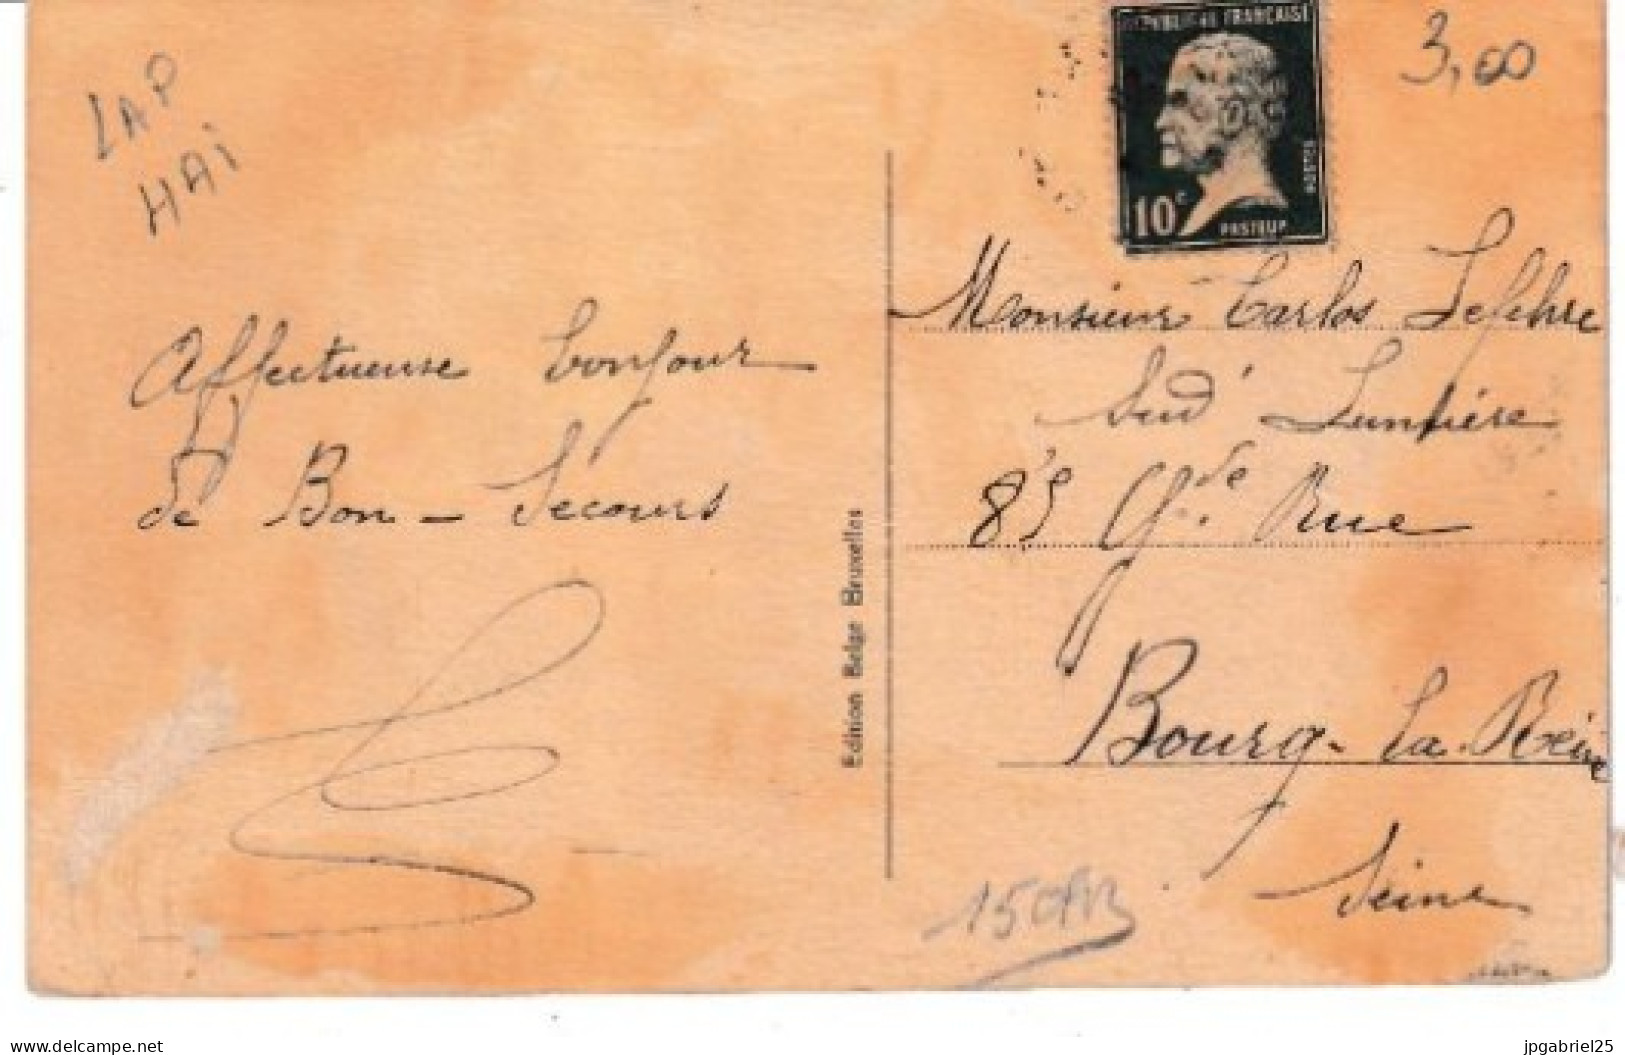 LAP
HAI
Affectueuse bonjour
de Bon-Secours
Edition Belge Bruxelles
REPUBLIQUE FRANÇAISE
POSTES
10c
PASTEUR
3,00
Monsieur Carlos Lefebvre
Sud Lumière
85 Gde Rue
Bourg-la-Reine
Seine
www.delcampe.net
jpgabriel25